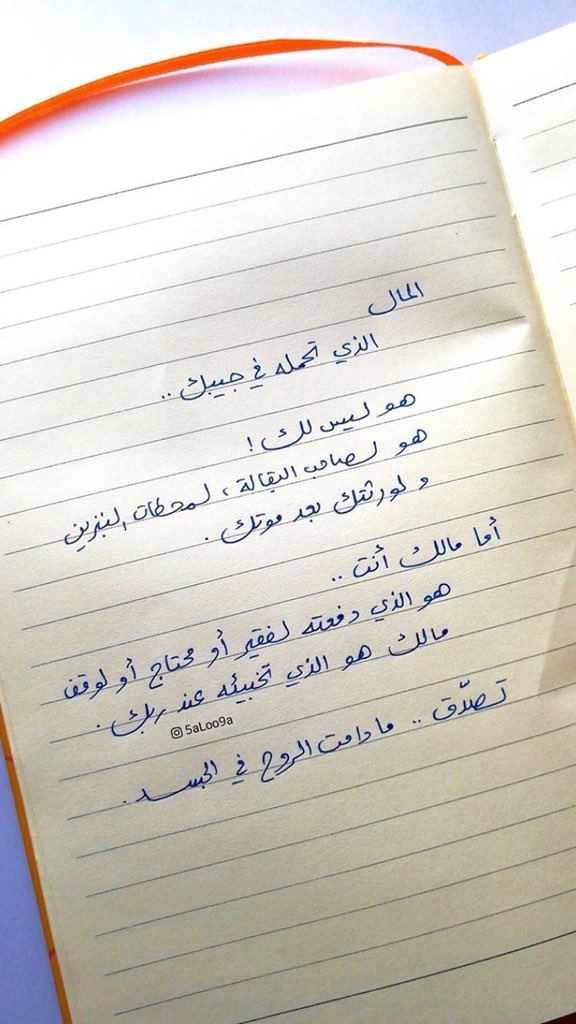 المال
الذي تحمله في جيبك ..
هو ليس لك !
هو لصاحب البقالة ، لمحطات البنزين
و لورثتك بعد موتك .
أما مالك أنت ..
هو الذي دفعته لفقير أو محتاج أو لوقف
مالك هو الذي تخبيئه عند ربك .
5aLoo9a
تصدّق .. مادامت الروح في الجسد .